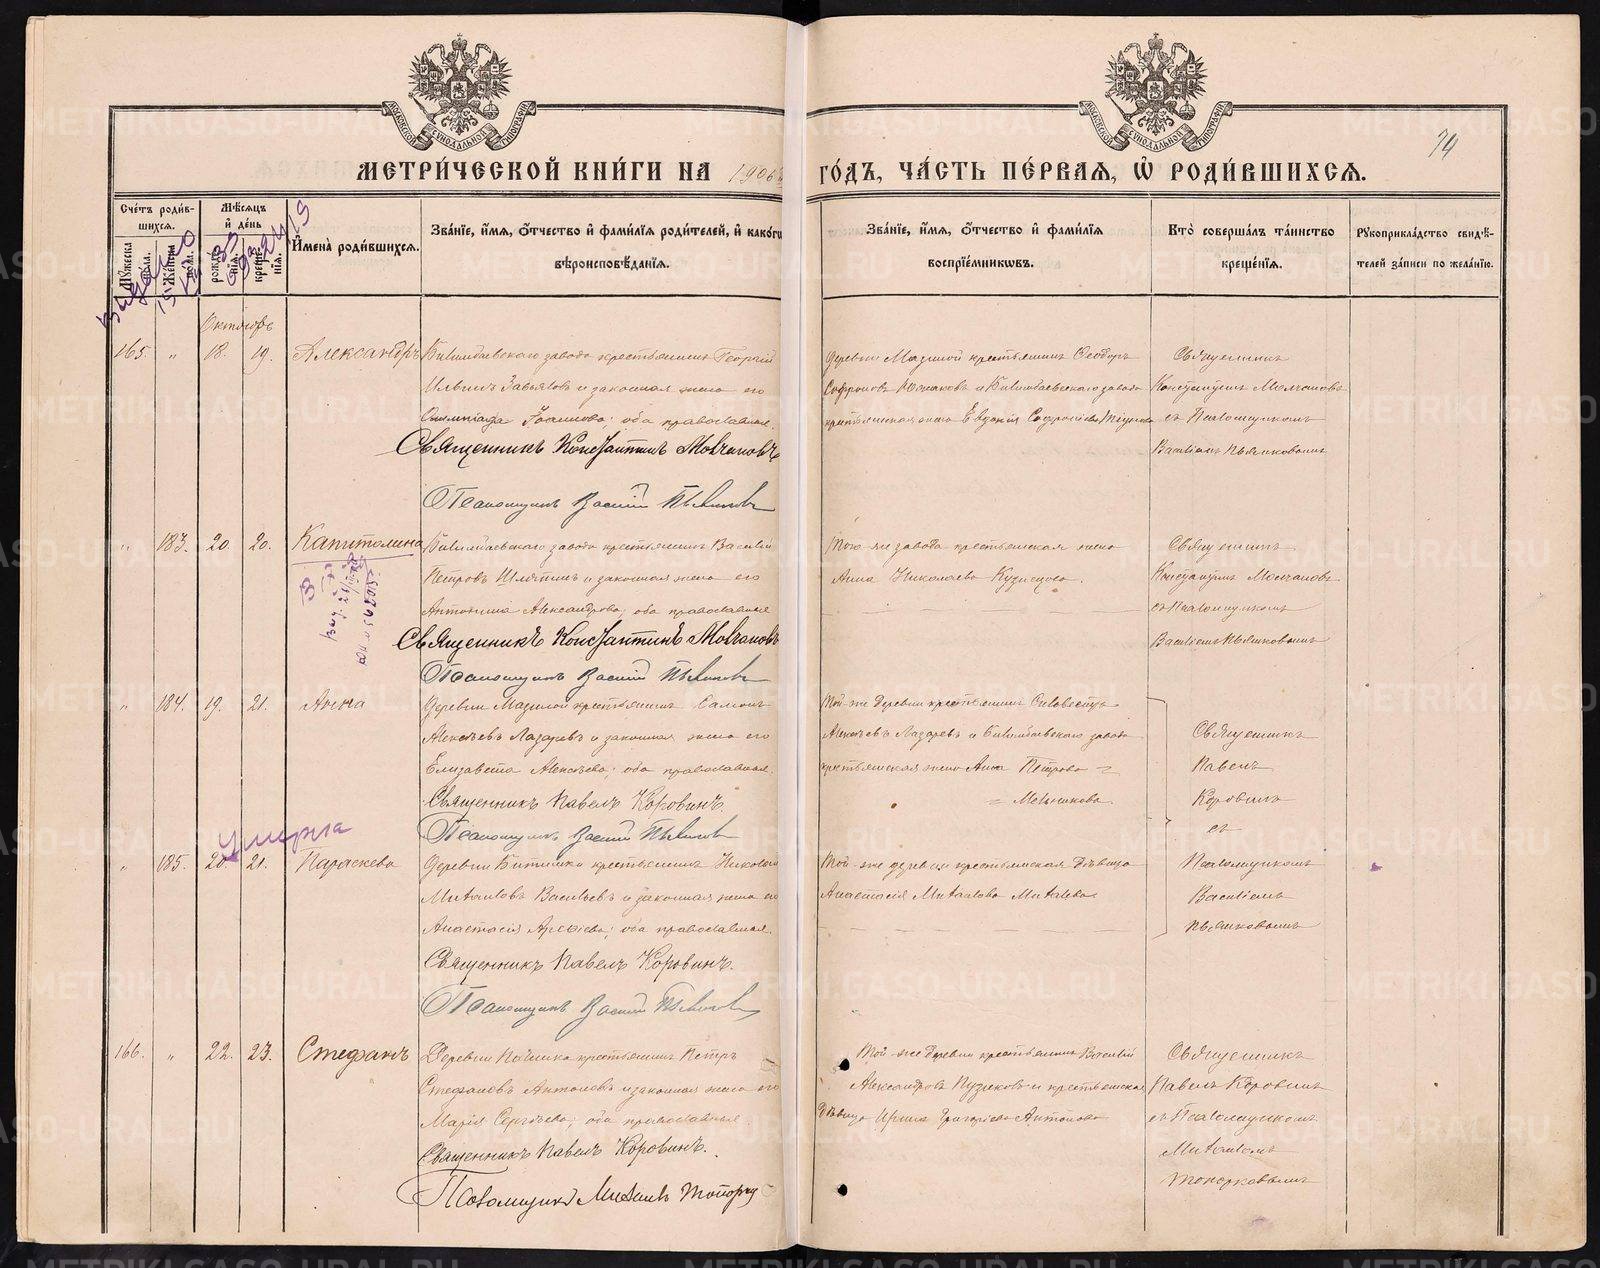 МЕТРИ́ЧЕСКОЙ КНИ́ГИ НА 1906 ГО́ДЪ, ЧА́СТЬ ПЕ́РВАЯ, Ѽ РОДИ́ВШИХСЯ.
74
Сче́тъ роди́вшихся.
Му́жеска пола.
Же́нска пола.
Мѣ́сяцъ и҆ де́нь
рожде́нїя.
креще́нїя.
И҆мена̀ роди́вшихся.
Зва́нїе, и҆́мя, ѻ҆́тчество и҆ фами́лїя роди́телей, и҆ како́гѡ
вѣроисповѣ́данїя.
Зва́нїе, и҆́мя, ѻ҆́тчество и҆ фами́лїя
воспрїе́мникѡвъ.
Кто̀ соверша́лъ та́инство
креще́нїя.
Рꙋкоприкла́дство свидѣ́-
телей за́писи по жела́нїю.
Октябрь
165. „ 18. 19. Александръ
Билимбаевскаго завода крестьянинъ Георгій
Ильинъ Завьяловъ и законная жена его
Олимпіада Іоаннова; оба православные.
Священникъ Константинъ Молчановъ
Псаломщикъ Василій Пьянковъ
Деревни Мазиной крестьянинъ Ѳеодоръ
Софроновъ и Билимбаевскаго завода
крестьянская жена Евдокія
Священникъ
Константинъ Молчановъ
съ Псаломщикомъ
Василіемъ Пьянковымъ
„ 183. 20. 20. Капитолина
Билимбаевскаго завода крестьянинъ Василій
Петровъ и законная жена его
Антонина Александрова; оба православные
Священникъ Константинъ Молчановъ
Псаломщикъ Василій Пьянковъ
Того-же завода крестьянская жена
Анна Николаева Кузнецова.
Священникъ
Константинъ Молчановъ
съ Псаломщикомъ
Василіемъ Пьянковымъ
„ 184. 19. 21. Анна
Деревни Мазиной крестьянинъ
Алексѣевъ Лазаревъ и законная жена его
Елизавета Алексѣева; оба православные.
Священникъ Павелъ Коровинъ.
Псаломщикъ Василій Пьянковъ
Той-же деревни крестьянинъ Сильвестръ
Алексѣевъ Лазаревъ и Билимбаевскаго завода
крестьянская жена Анна Петрова
= Мельникова.
Священникъ
Павелъ
Коровинъ
съ
Псаломщикомъ
Василіемъ
Пьянковымъ
умерла
„ 185. 20. 21. Параскева
Деревни Битимки крестьянинъ Николай
Михаиловъ Васильевъ и законная жена его
Анастасія; оба православные.
Священникъ Павелъ Коровинъ.
Псаломщикъ Василій Пьянковъ
Той-же деревни крестьянская дѣвица
Анастасія Михаилова Михалева
166. „ 22. 23. Стефанъ
Деревни Починка крестьянинъ Петръ
Стефановъ Антоновъ и законная жена его
Марія Сергѣева; оба православные.
Священникъ Павелъ Коровинъ.
Псаломщикъ Михаилъ Топорков
Той-же деревни крестьянинъ Василій
Александровъ Пузиковъ и крестьянская
дѣвица Ирина Григоріева Антонова
Священникъ
Павелъ Коровинъ
съ Псаломщикомъ
Михаиломъ
Топорковымъ
METRIKI.GASO-URAL.RU